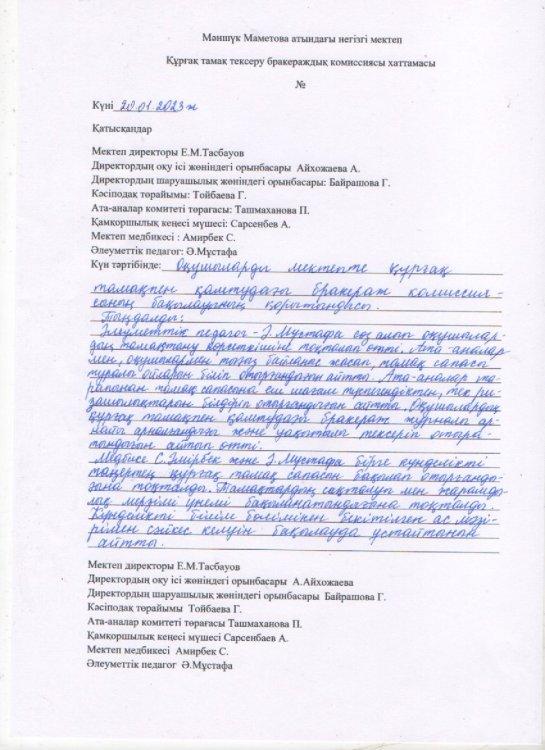 Мәншүк Маметова атындағы негізгі мектеп
Құрғақ тамақ тексеру бракераждық комиссиясы хаттамасы
№
Күні 20.01.2023 ж
Қатысқандар
Мектеп директоры Е.М.Тасбауов
Директордың оқу ісі жөніндегі орынбасары Айхожаева А.
Директордың шаруашылық жөніндегі орынбасары: Байрашова Г.
Кәсіподақ төрайымы: Тойбаева Г.
Ата-аналар комитеті төрағасы: Ташмаханова П.
Қамқоршылық кеңесі мүшесі: Сарсенбев А.
Мектеп медбикесі : Амирбек С.
Әлеуметтік педагог: Ә.Мұстафа
Күн тәртібінде: Оқушыларды мектепте құрғақ
тамақпен қамтудағы бракераж комиссия-
сының бақылауының қорытындысы.
Тыңдалды:
Әлеуметтік педагог - Ә.Мұстафа сөз алып оқушылар-
дың тамақтану көрсеткішіне тоқталып өтті. Ата-аналар
мен, оқушылармен тығыз байланыс жасап, тамақ сапасы
туралы ойларын біліп отырғандығын айтты. Ата-аналар та-
рапынан тамақ сапасына еш шағым түспегендіктен, тек ри-
зашылықтарын білдіріп отырғандығын айтты. Оқушылардың
құрғақ тамақпен қамтудағы бракераж журналы ар-
найы арналғандығы және уақытылы тексеріп отыра-
тындығын айтып өтті.
Медбике С.Әмірбек және Ә.Мұстафа бірге күнделікті
таңертең құрғақ тамақ сапасын бақылап отырғанды-
ғына тоқталды. Тамақтардың сақталуы мен жарамды-
лық мерзімі үнемі бақыланатындығына тоқталды.
Күнделікті білім бөлімінен бекітілген ас мәзі-
рімен сәйкес келуін бақылауда ұстайтынын
айтты.
Мектеп директоры Е.М.Тасбауов
Директордың оқу ісі жөніндегі орынбасары А.Айхожаева
Директордың шаруашылық жөніндегі орынбасары Байрашова Г.
Кәсіподақ төрайымы Тойбаева Г.
Ата-аналар комитеті төрағасы Ташмаханова П.
Қамқоршылық кеңесі мүшесі Сарсенбаев А.
Мектеп медбикесі Амирбек С.
Әлеуметтік педагог Ә.Мұстафа